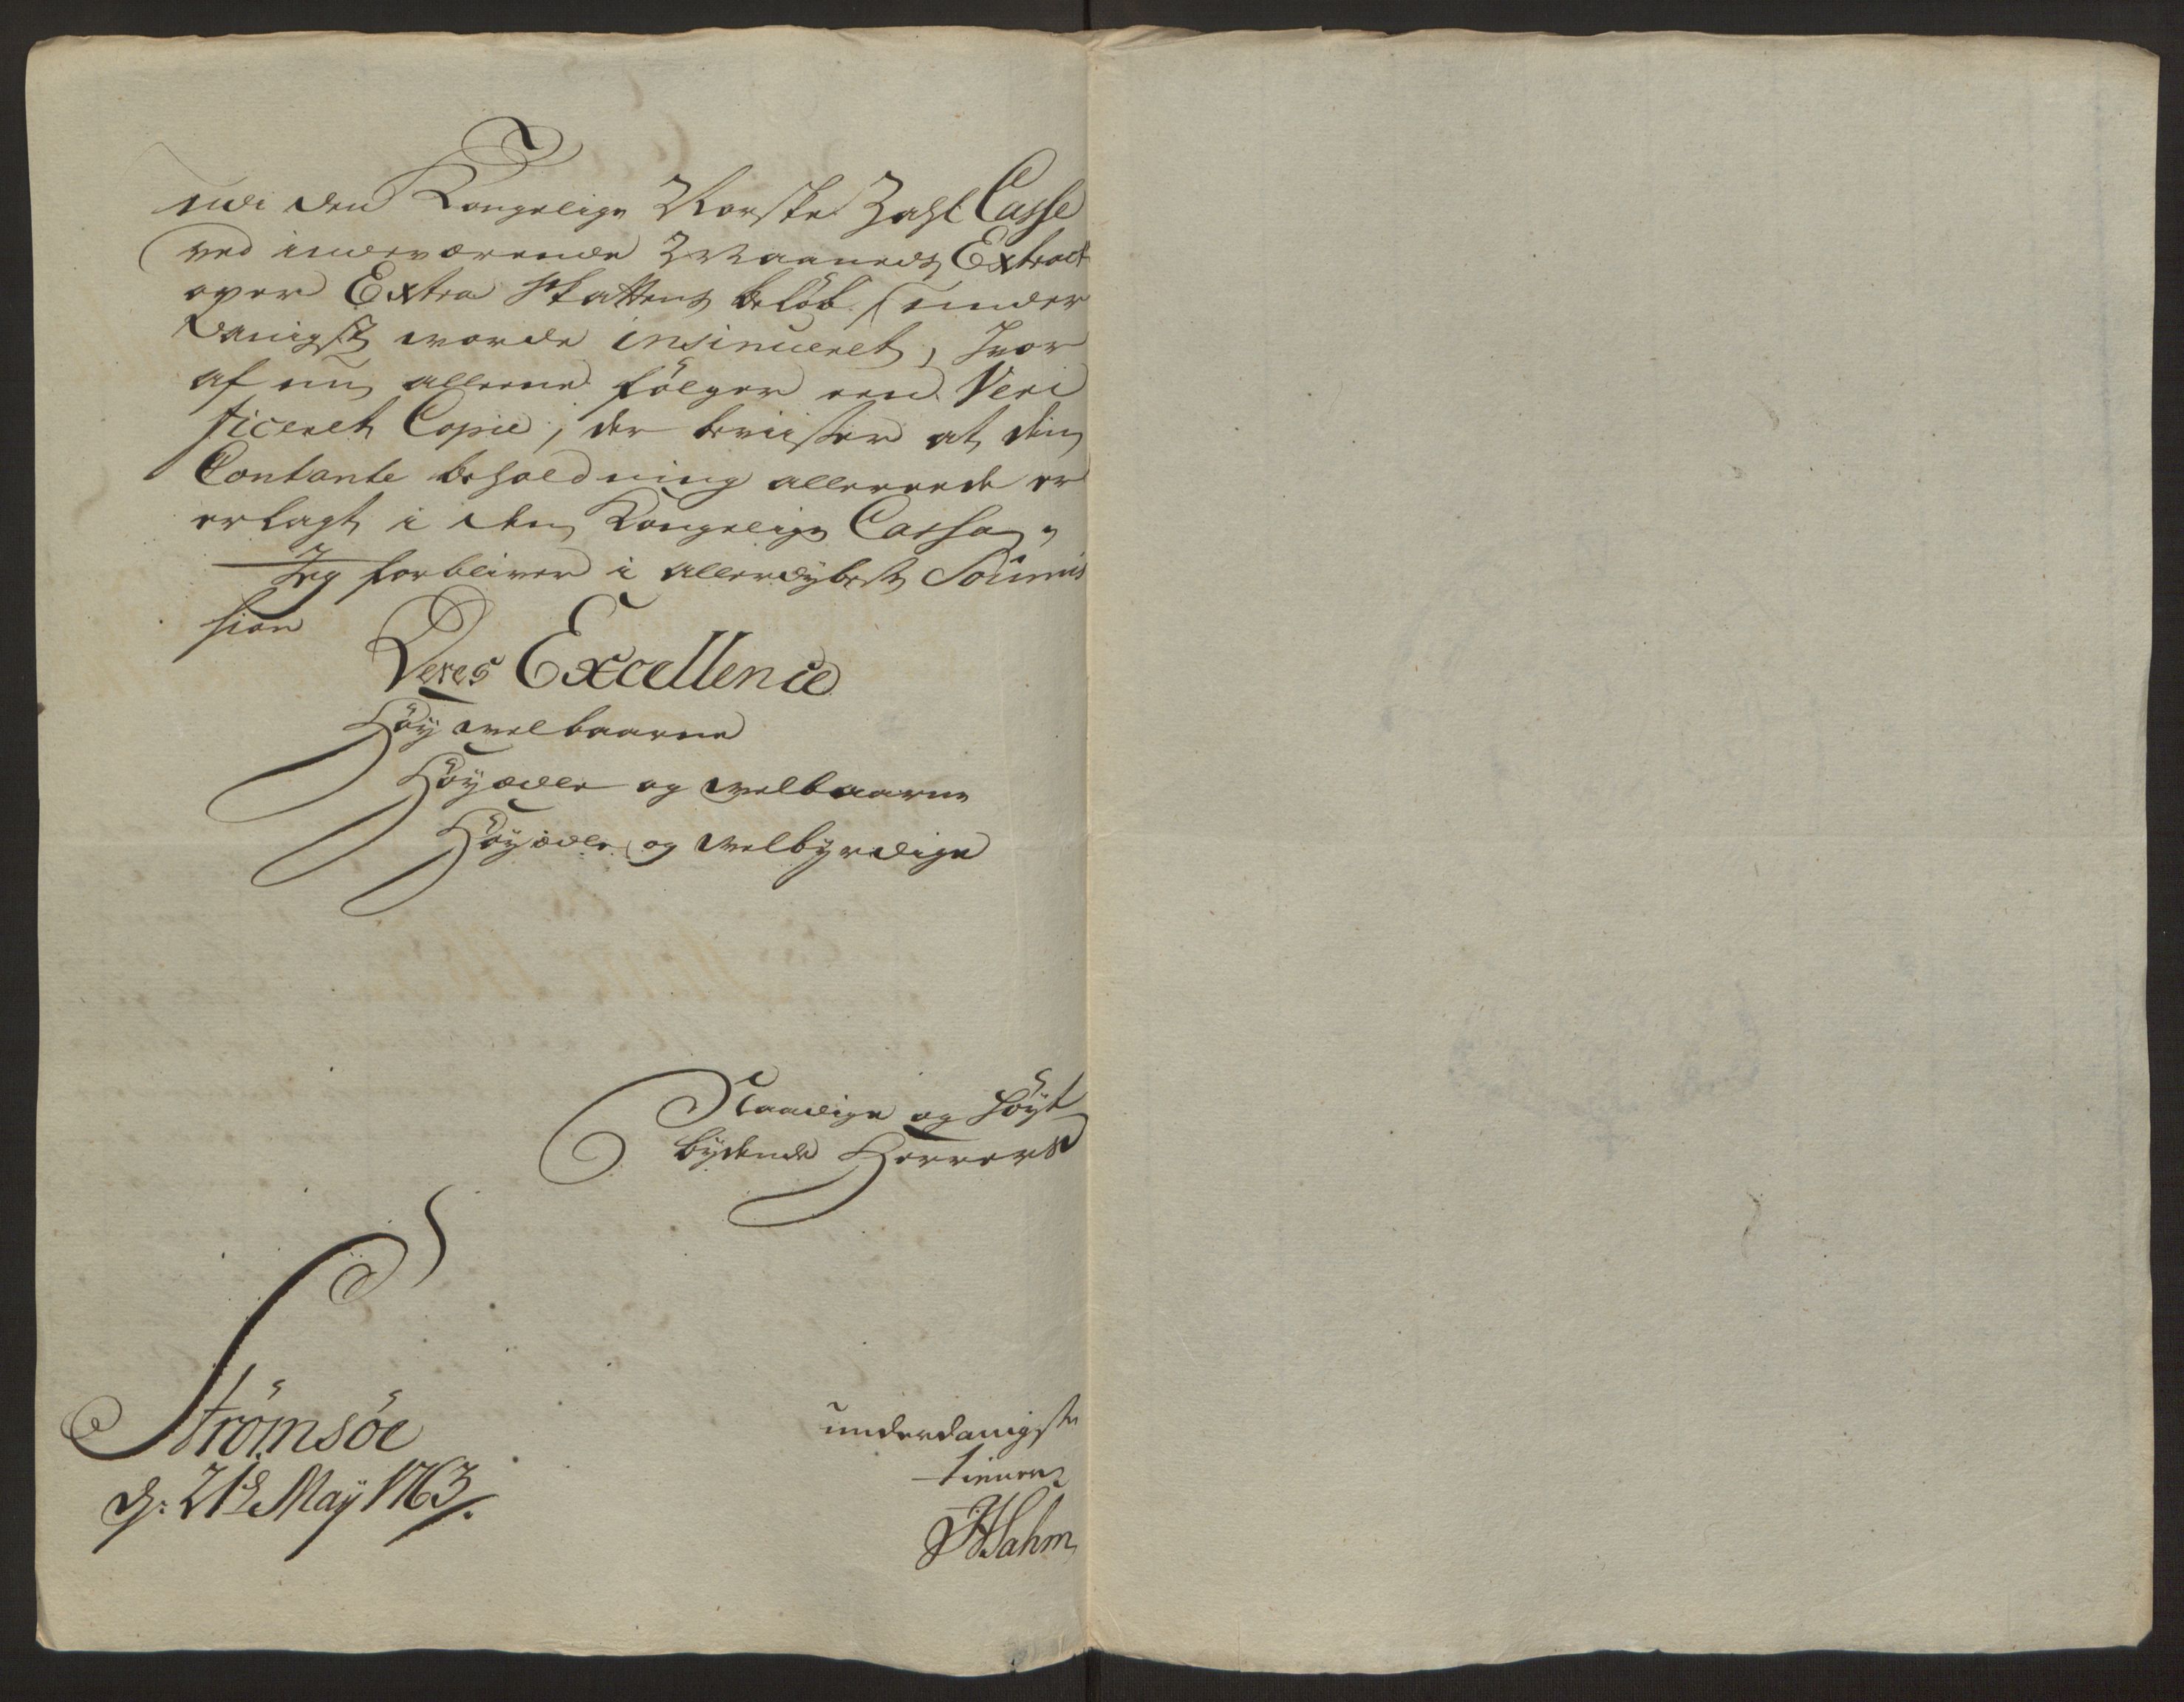 udi den Kongelige Norske Zahl Casse
ved indeværende Maaneds Extract
over Extra Skattens beløb under
danigst vorde insinueret, hvor
af nu allene følger een Veri
ficeret Copie, der beviiser at den
Contante beholdning allereede er
erlagt i den Kongelige Cassa,
Jeg forbliver i allerdybeste Soumis
sion
Deres Excellence
Høy velbaarne
Høyædle og velbaarne
Høyædle og velbyrdige
Naadige og høyt
bydende Herrers
Strömsöe
d: 21de Maÿ 1763.
underdanigste
tienere